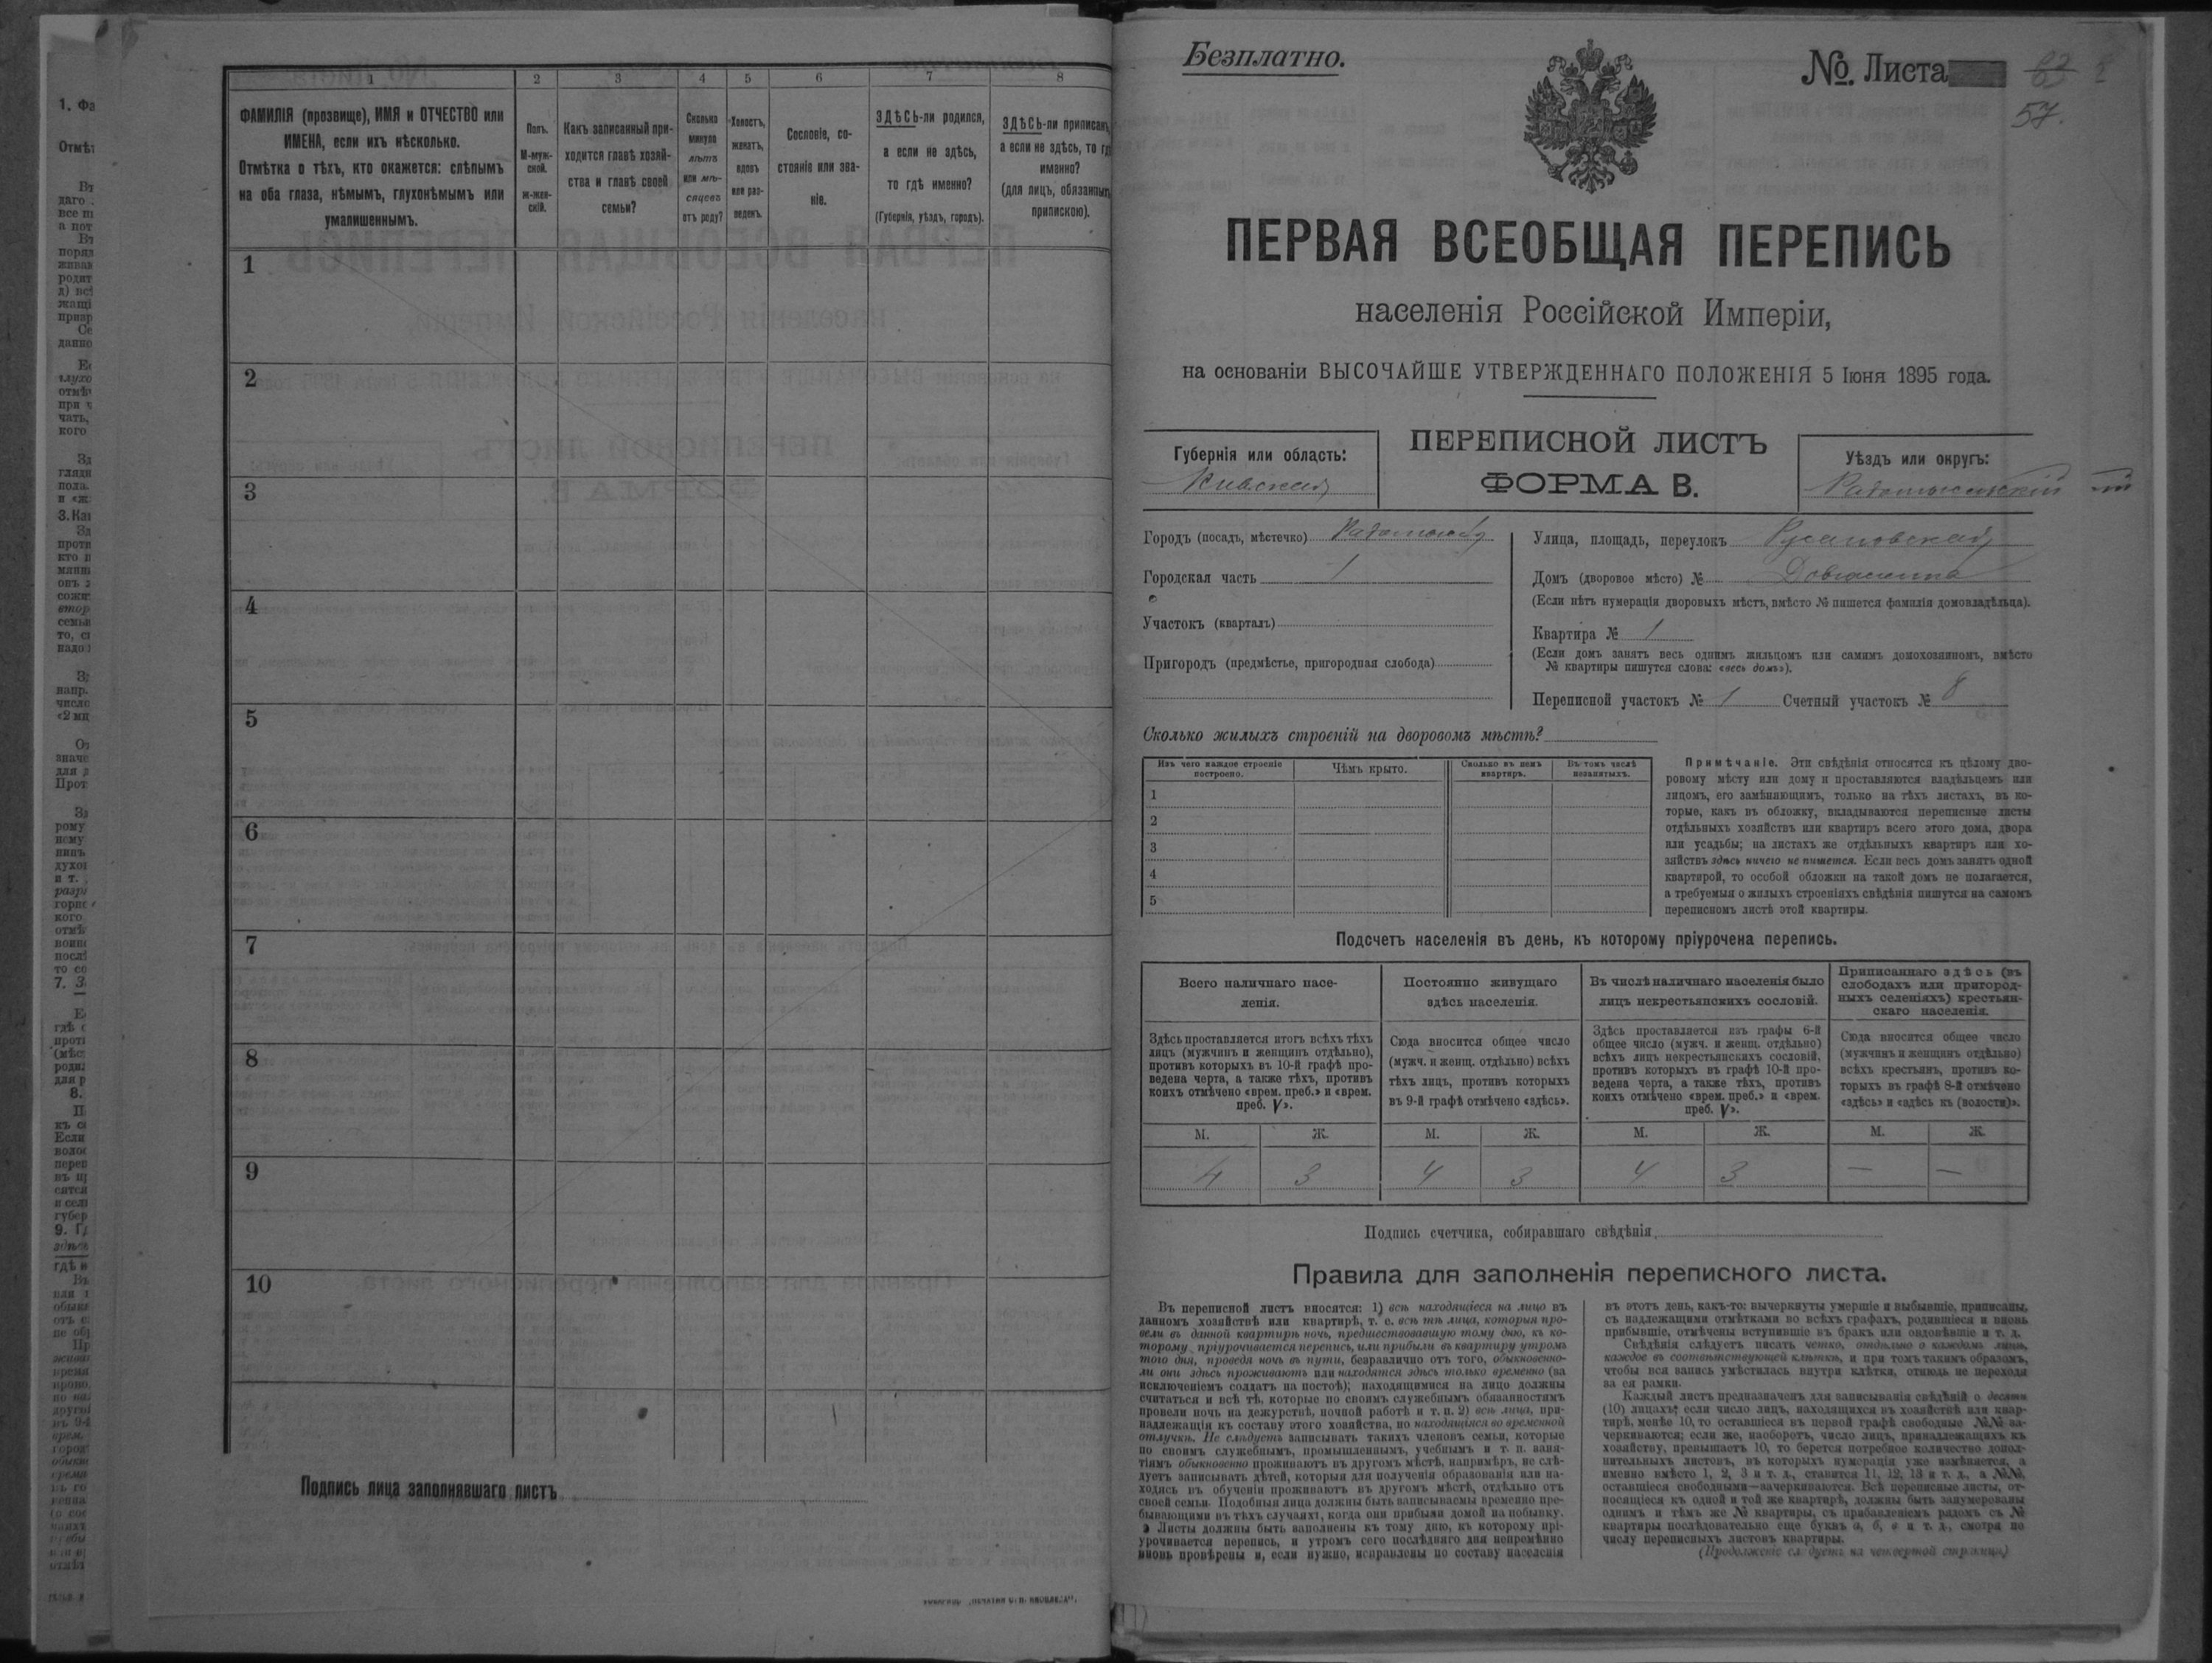 1
2
3
4
5
6
7
8
ФАМИЛІЯ (прозвище), ИМЯ и ОТЧЕСТВО или
ИМЕНА, если ихъ нѣсколько.
Отмѣтка о тѣхъ, кто окажется: слѣпымъ
на оба глаза, нѣмымъ, глухонѣмымъ или
умалишеннымъ.
Полъ.
М-муж-
ской.
ж-жен-
скій.
Какъ записанный при-
ходится главѣ хозяй-
ства и главѣ своей
семьи?
Сколько
минуло
лѣтъ
или мѣ-
сяцевъ
отъ роду?
Холостъ,
женатъ,
вдовъ
или раз-
веденъ.
Сословіе, со-
стояніе или зва-
ніе.
ЗДѢСЬ-ли родился,
а если не здѣсь,
то гдѣ именно?
(Губернія, уѣздъ, городъ).
ЗДѢСЬ-ли приписанъ,
а если не здѣсь, то гдѣ
именно?
(для лицъ, обязанныхъ
припискою).
1
2
3
4
5
6
7
8
9
10
Подпись лица заполнявшаго листъ
Безплатно.
№. Листа
57.
ПЕРВАЯ ВСЕОБЩАЯ ПЕРЕПИСЬ
населенія Россійской Имперіи,
на основаніи ВЫСОЧАЙШЕ УТВЕРЖДЕННАГО ПОЛОЖЕНІЯ 5 Іюня 1895 года.
Губернія или область:
Кіевская
ПЕРЕПИСНОЙ ЛИСТЪ
ФОРМА В.
Уѣздъ или округъ:
Радомысльскій
Городъ (посадъ, мѣстечко) Радомысль
Городская часть 1
Участокъ (кварталъ)
Пригородъ (предмѣстье, пригородная слобода)
Улица, площадь, переулокъ
Домъ (дворовое мѣсто) №
(Если нѣтъ нумераціи дворовыхъ мѣстъ, вмѣсто № пишется фамилія домовладѣльца).
Квартира № 1
(Если домъ занятъ весь однимъ жильцомъ или самимъ домохозяиномъ, вмѣсто
№ квартиры пишутся слова: «весь домъ»).
Переписной участокъ № 1 Счетный участокъ № 8
Сколько жилыхъ строеній на дворовомъ мѣстѣ?
Изъ чего каждое строеніе
построено.
Чѣмъ крыто.
Сколько въ немъ
квартиръ.
Въ томъ числѣ
незанятыхъ.
1
2
3
4
5
Примѣчаніе. Эти свѣдѣнія относятся къ цѣлому дво-
ровому мѣсту или дому и проставляются владѣльцемъ или
лицомъ, его замѣняющимъ, только на тѣхъ листахъ, въ ко-
торые, какъ въ обложку, вкладываются переписные листы
отдѣльныхъ хозяйствъ или квартиръ всего этого дома, двора
или усадьбы; на листахъ же отдѣльныхъ квартиръ или хо-
зяйствъ здѣсь ничего не пишется. Если весь домъ занятъ одной
квартирой, то особой обложки на такой домъ не полагается,
а требуемыя о жилыхъ строеніяхъ свѣдѣнія пишутся на самомъ
переписномъ листѣ этой квартиры.
Подсчетъ населенія въ день, къ которому пріурочена перепись.
Всего наличнаго насе-
ленія.
Постоянно живущаго
здѣсь населенія.
Въ числѣ наличнаго населенія было
лицъ некрестьянскихъ сословій.
Приписаннаго здѣсь (въ
слободахъ или пригород-
ныхъ селеніяхъ) крестьян-
скаго населенія.
Здѣсь проставляется итогъ всѣхъ тѣхъ
лицъ (мужчинъ и женщинъ отдѣльно),
противъ которыхъ въ 10-й графѣ про-
ведена черта, а также тѣхъ, противъ
коихъ отмѣчено «врем. преб.» и «врем.
преб. V».
Сюда вносится общее число
(мужч. и женщ. отдѣльно) всѣхъ
тѣхъ лицъ, противъ которыхъ
въ 9-й графѣ отмѣчено «здѣсь».
Здѣсь проставляется изъ графы 6-й
общее число (мужч. и женщ. отдѣльно)
всѣхъ лицъ некрестьянскихъ сословій,
противъ которыхъ въ графѣ 10-й про-
ведена черта, а также тѣхъ, противъ
коихъ отмѣчено «врем. преб.» и «врем.
преб. V».
Сюда вносится общее число
(мужчинъ и женщинъ отдѣльно)
всѣхъ крестьянъ, противъ ко-
торыхъ въ графѣ 8-й отмѣчено
«здѣсь» и «здѣсь къ (волости)».
М. Ж. М. Ж. М. Ж. М. Ж.
4 3 4 3 4 3 — —
Подпись счетчика, собиравшаго свѣдѣнія
Правила для заполненія переписного листа.
Въ переписной листъ вносятся: 1) всѣ находящіеся на лицо въ
данномъ хозяйствѣ или квартирѣ, т. е. всѣ тѣ лица, которыя про-
вели въ данной квартирѣ ночь, предшествовавшую тому дню, къ ко-
торому пріурочивается перепись, или прибыли въ квартиру утромъ
того дня, проведя ночь въ пути, безразлично отъ того, обыкновенно-
ли они здѣсь проживаютъ или находятся здѣсь только временно (за
исключеніемъ солдатъ на постоѣ); находящимися на лицо должны
считаться и всѣ тѣ, которые по своимъ служебнымъ обязанностямъ
провели ночь на дежурствѣ, ночной работѣ и т. п. 2) всѣ лица, при-
надлежащія къ составу этого хозяйства, но находящіяся во временной
отлучкѣ. Не слѣдуетъ записывать такихъ членовъ семьи, которые
по своимъ служебнымъ, промышленнымъ, учебнымъ и т. п. заня-
тіямъ обыкновенно проживаютъ въ другомъ мѣстѣ, напримѣръ, не слѣ-
дуетъ записывать дѣтей, которыя для полученія образованія или на-
ходясь въ обученіи проживаютъ въ другомъ мѣстѣ, отдѣльно отъ
своей семьи. Подобныя лица должны быть записываемы временно пре-
бывающими въ тѣхъ случаяхъ, когда они прибыли домой на побывку.
Листы должны быть заполнены къ тому дню, къ которому прі-
урочивается перепись, и утромъ сего послѣдняго дня непремѣнно
вновь провѣрены и, если нужно, исправлены по составу населенія
въ этотъ день, какъ-то: вычеркнуты умершіе и выбывшіе, приписаны,
съ надлежащими отмѣтками во всѣхъ графахъ, родившіеся и вновь
прибывшіе, отмѣчены вступившіе въ бракъ или овдовѣвшіе и т. д.
Свѣдѣнія слѣдуетъ писать четко, отдѣльно о каждомъ лицѣ,
каждое въ соотвѣтствующей клѣткѣ, и при томъ такимъ образомъ,
чтобы вся запись умѣстилась внутри клѣтки, отнюдь не переходя
за ея рамки.
Каждый листъ предназначенъ для записыванія свѣдѣній о десяти
(10) лицахъ; если число лицъ, находящихся въ хозяйствѣ или квар-
тирѣ, менѣе 10, то оставшіеся въ первой графѣ свободные №№ за-
черкиваются; если же, наоборотъ, число лицъ, принадлежащихъ къ
хозяйству, превышаетъ 10, то берется потребное количество допол-
нительныхъ листовъ, въ которыхъ нумерація уже измѣняется, а
именно вмѣсто 1, 2, 3 и т. д., ставится 11, 12, 13 и т. д., а №№,
оставшіеся свободными—зачеркиваются. Всѣ переписные листы, от-
носящіеся къ одной и той же квартирѣ, должны быть занумерованы
однимъ и тѣмъ же № квартиры, съ прибавленіемъ рядомъ съ №
квартиры послѣдовательно еще буквъ а, б, в и т. д., смотря по
числу переписныхъ листовъ квартиры.
(Продолженіе слѣдуетъ на четвертой страницѣ)